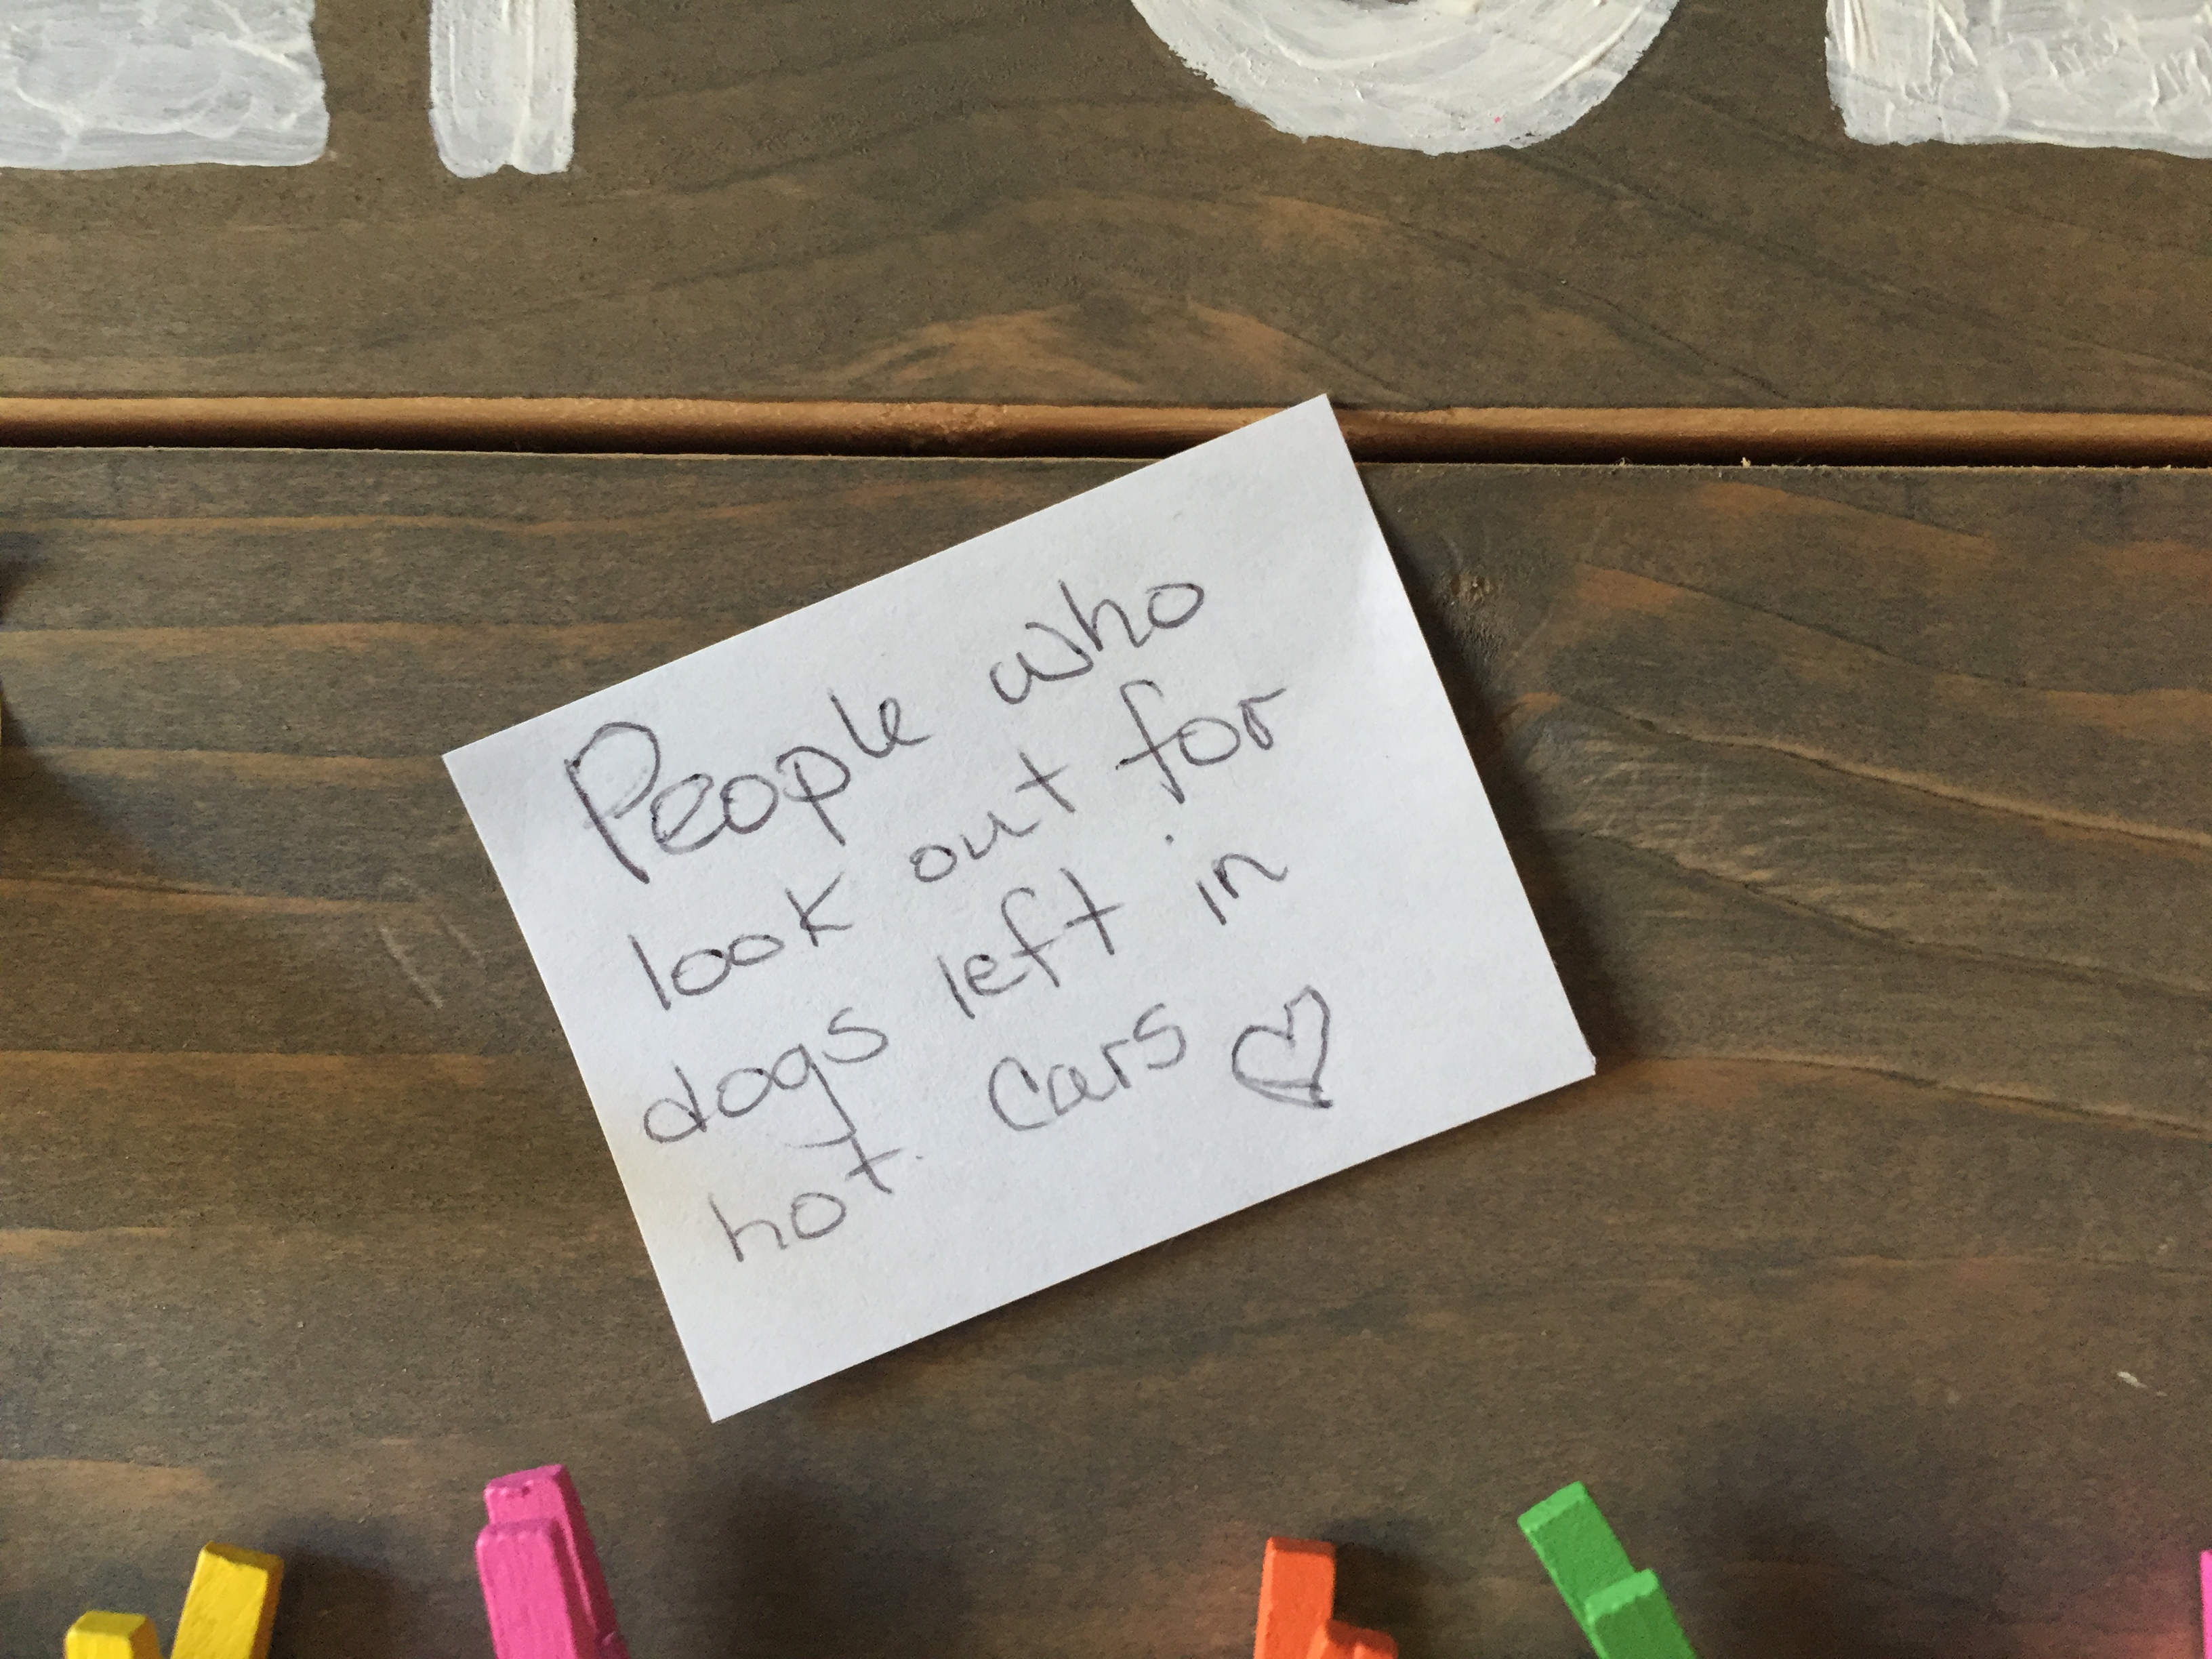 People who
look out for
dogs left in
hot cars ♡